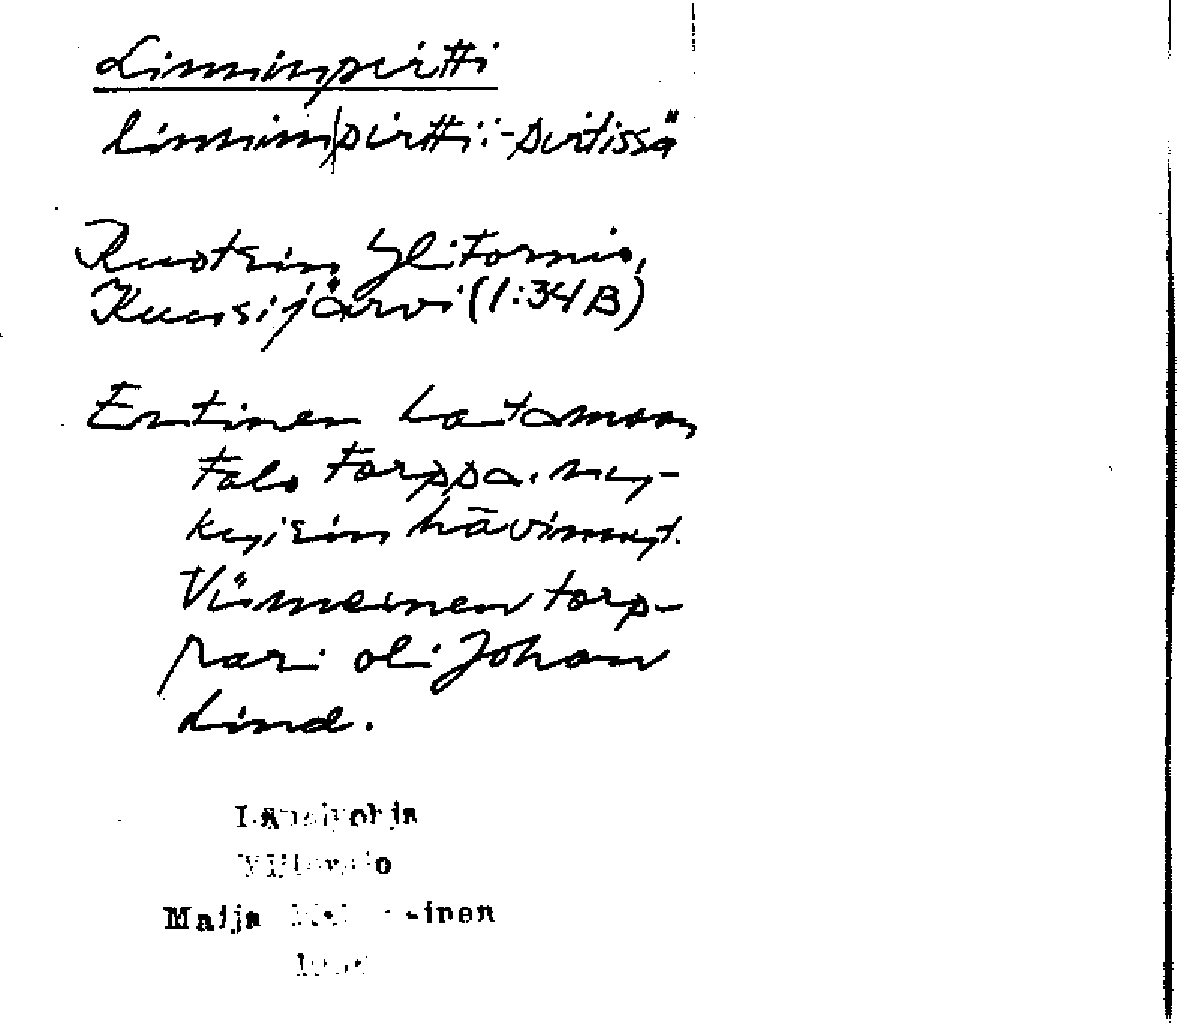 Linninpirtti
linnin|pirtti: -pirtissä
Ruotsin Ylitornio,
Kuusijärvi (1:34 B)
Entinen
talo torppa. ny-
kyisin hävinnyt.
Viimeinen torp-
pari oli Johan
Lind.
Länsipohja
Ylitornio
Maija